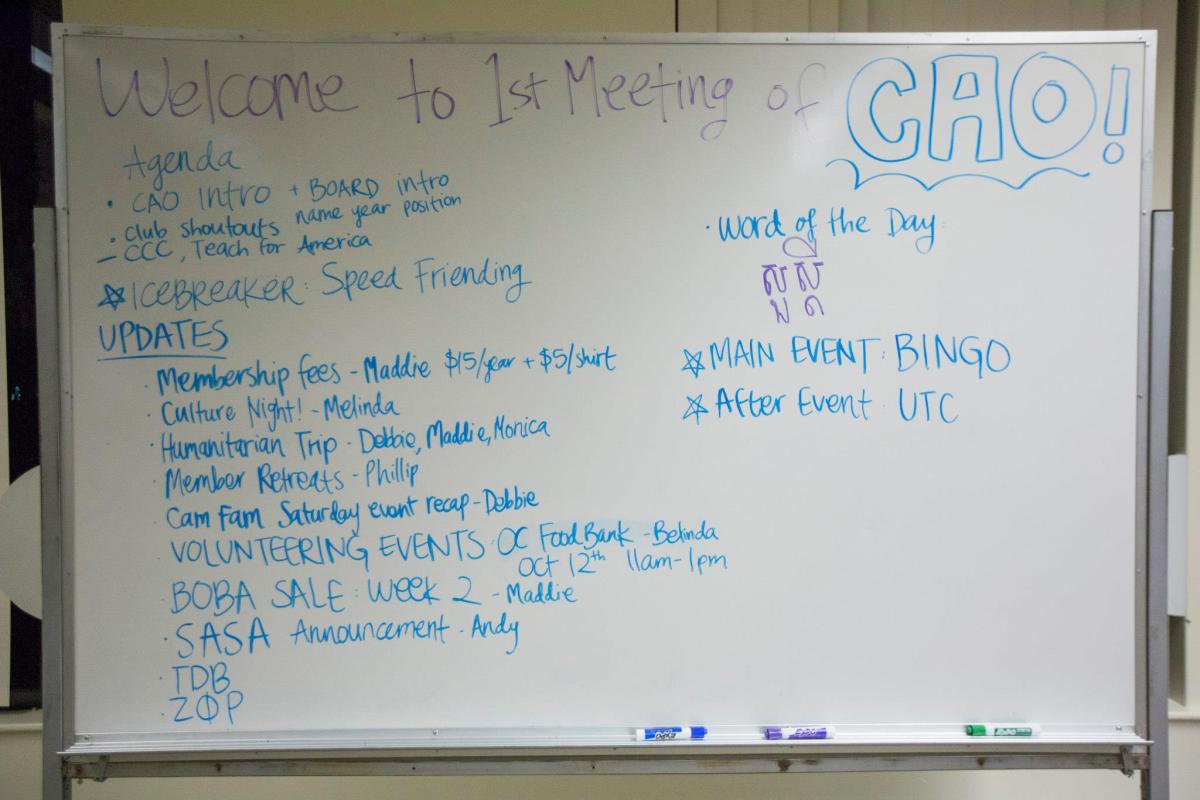 Welcome to 1st Meeting of CAO!
Agenda
• CAO Intro + BOARD intro
name year position
• Club shoutouts
– CCC, Teach for America
☆ ICEBREAKER: Speed Friending
UPDATES
· Membership fees - Maddie $15/year + $5/shirt
· Culture Night! - Melinda
· Humanitarian Trip - Debbie, Maddie, Monica
· Member Retreats - Phillip
· Cam Fam Saturday event recap - Debbie
· VOLUNTEERING EVENTS: OC Food Bank - Belinda
Oct 12th 11am-1pm
· BOBA SALE: Week 2 - Maddie
· SASA Announcement - Andy
· TDB
· ZΦP
· Word of the Day:
សួស្ដី
☆ MAIN EVENT: BINGO
☆ After Event: UTC